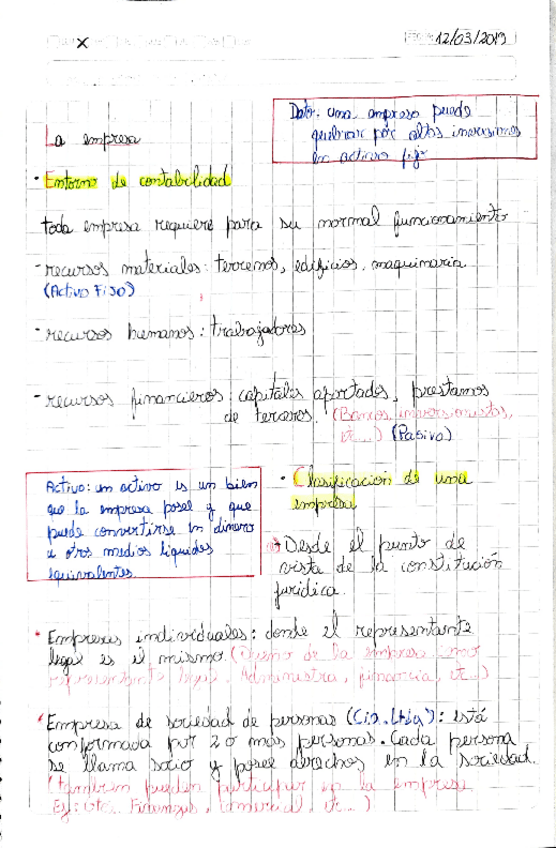 12/03/2019
Dato: una empresa puede
quebrar por altas inversiones
en activo fijo
La empresa
• Entorno de contabilidad
toda empresa requiere para su normal funcionamiento
- recursos materiales: terrenos, edificios, maquinaria
(Activo Fijo)
- recursos humanos: trabajadores
- recursos financieros: capitales aportados, prestamos
de terceros. (Bancos, inversionistas,
etc...) (Pasivo)
Activo: un activo es un bien
que la empresa posee y que
puede convertirse en dinero
u otros medios líquidos
equivalentes.
• Clasificacion de una
empresa
Desde el punto de
vista de la constitución
juridica.
* Empresas individuales: donde el representante
legal es el mismo. (Dueño de la empresa como
representante legal. Administra, financia, etc...)
* Empresa de sociedad de personas (Cia. Ltda): está
conformada por 2 o mas personas. Cada persona
se llama socio y posee derechos en la sociedad.
(tambien pueden participar en la empresa
Ej: Finanzas, comercial, etc...)